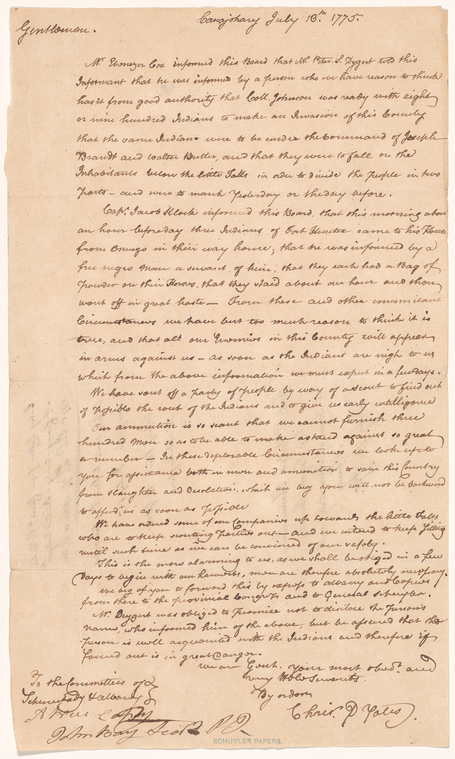 Canajohary July 13th 1775.
Gentlemen.
Mr Ebenezer Cox informed this Board that Mr Peter S. Dygert told this
Informant that he was informed by a person who we have reason to think
has it from good authority that Coll. Johnson was ready with eight
or nine hundred Indians to make an Invasion of this County
that the same Indians were to be under the Command of Joseph
Brandt and Walter Butler, and that they were to fall on the
Inhabitants below the little Falls in order to divide the people in two
Parts — and were to march Yesterday or the day before.
Capt. Jacob Klock informed this Board, that this morning about
an hour before day three Indians of Fort Hunter came to his House
from Oswego in their way home; that he was informed by a
free negro Man a servant of him, that they each had a Bag of
Powder on their Horses, that they staid about an hour and then
went off in great haste — From these and other concomitant
Circumstances we have but too much reason to think it is
true, and that all our Enemies in this County will appear
in arms against us — as soon as the Indians are nigh to us
which from the above information we must expect in a few days.
We have sent off a Party of People by way of a scout to find out
if possible the rout of the Indians and to give us early intelligence
Our ammunition is so scant that we cannot furnish three
hundred Men so as to be able to make a stand against so great
a number — In these deplorable Circumstances we look up to
you for assistance both in men and ammunition to save this Country
from slaughter and desolation, which we beg you will not be backward
to afford us as soon as possible
We have ordered some of our Companies up towards the little Falls
who are to keep scouting Parties out — and we intend to keep sitting
until such time as we can be convinced of our safety.
This is the more alarming to us, as we shall be obliged in a few
Days to begin with our harvests, men are therefore absolutely necessary.
We beg of you to forward this by express to albany and Copies
from there to the provincial Congress and to General Schuyler.
Mr. Deygert was obliged to promise not to disclose the Person's
name, who informed him of the above, but be assured that the
Person is well acquainted with the Indians and therefore if
found out is in great Danger.
We are Gent. Your most obedt. and
very Hble Servants.
To the Committees of
Schenectady & albany
By order
A True Copy
Chrisr. P Yates.
John Bay
SCHUYLER PAPERS